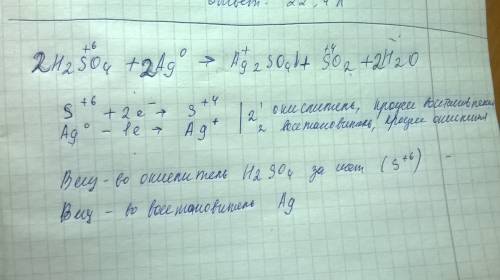 Ответ: 22,4 л
2H₂S⁺⁶O₄ + 2Ag⁰ → Ag⁺₂SO₄↓ + S⁺⁴O₂ + 2H₂O
S⁺⁶ + 2e⁻ → S⁺⁴ | 2 1 окислитель, процесс восстановления
Ag⁰ – 1e → Ag⁺ | 2 восстановитель, процесс окисления
Вещ-во окислитель H₂SO₄ за счет (S⁺⁶)
Вещ-во восстановитель Ag